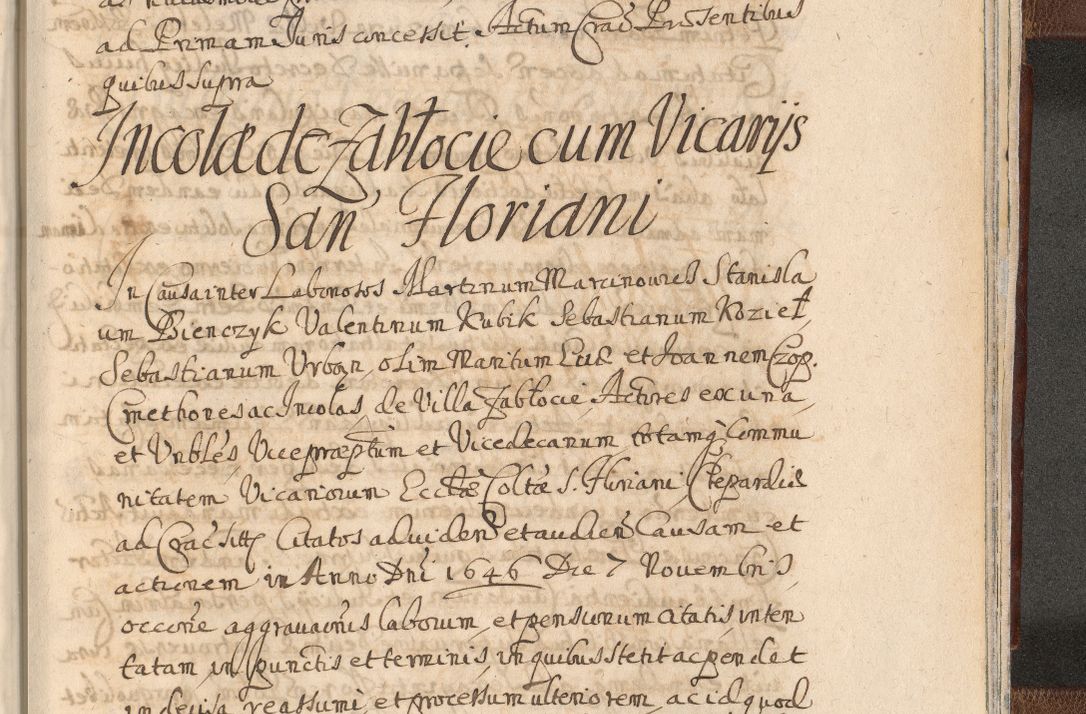 ad Primam Juris concessit. Actum Crac Præsentibus
quibus supra
Incolæ de Zabłocie cum Vicarijs
San Floriani
In Causa inter Laboriosos Martinum Marcinowies Stanisla
um Bienczyk Valentinum Kubik Sebastianum Kozieł
Sebastianum Vrban, olim Maritum Euæ et Joannem Czop.
Cmethones ac Incolas de Villa Zabłocie Actores ex una
et Vnbles Vicepræptum et Vicedecanum totamq Commu
nitatem Vicariorum Ecctæ Coltæ S. Floriani Clepardiæ
ad Crac sitti Citatos ad viden et audien Causam et
actionem in Anno Dni 1646 Die 7 Novembris
occone aggravaonis laborum, et pensionum citatis inten
tatam in punctis et terminis, in quibus stetit ac pendet
indecisa reassumi, et processum ulteriorem, ac id quod